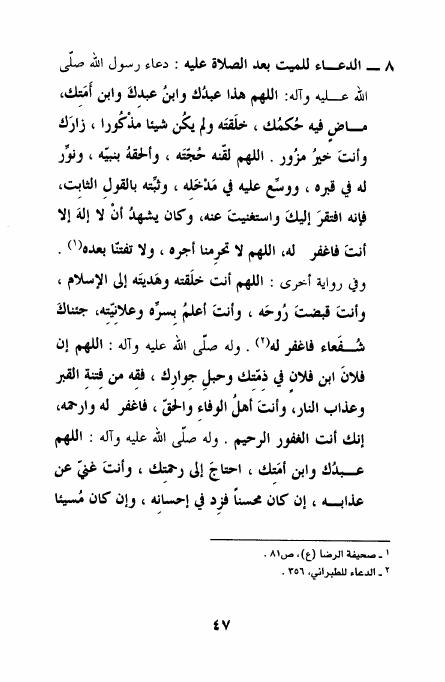 ٨ ــ الدعـــاء للميت بعد الصلاة عليه : دعاء رسول الله صلّى
الله عـــليه وآله: اللهم هذا عبدُك وابنُ عبدِكَ وابن أمَتِك،
مـــاضٍ فيه حُكمُك ، خلَقتَه ولم يكُن شيئا مذْكُورا ، زارَك
وأنتَ خيرُ مزُور . اللهم لقّنه حُجّتَه ، وألحقهُ بنبيّه ، ونوِّر
له في قبره ، ووسِّع عليه في مَدْخَله ، وثبِّته بالقول الثابت،
فإنه افتقرَ إليكَ واستغنيتَ عنه، وكان يشهدُ أنْ لا إلهَ إلا
أنتَ فاغفر له، اللهم لا تحرِمنا أجره ، ولا تفتنّا بعده(١) .
وفي رواية أخرى : اللهم أنت خلَقته وهَديتَه إلى الإسلام ،
وأنتَ قبضتَ رُوحَه ، وأنتَ أعلمُ بسرِّه وعلانِيّتِه، جئناكَ
شُــفَعاء فاغفر له(٢) . وله صلّى الله عليه وآله : اللهم إن
فلانَ ابن فلانٍ في ذِمّتِك وحبلِ جوارِك ، فقه من فِتنةِ القبر
وعذاب النار، وأنتَ أهلُ الوفاءِ والحقّ ، فاغفر له وارحمه،
إنك أنت الغفور الرحيم . وله صلّى الله عليه وآله : اللهم
عـــبدُك وابن أمَتِك ، احتاجَ إلى رحمتِك ، وأنتَ غنيّ عن
عذابـــه ، إن كان محسناً فزِد في إحسانِه ، وإن كان مُسيئا
١ ـ صحيفة الرضا (ع)، ص٨١ .
٢ ـ الدعاء للطبراني، ٣٥٦ .
٤٧